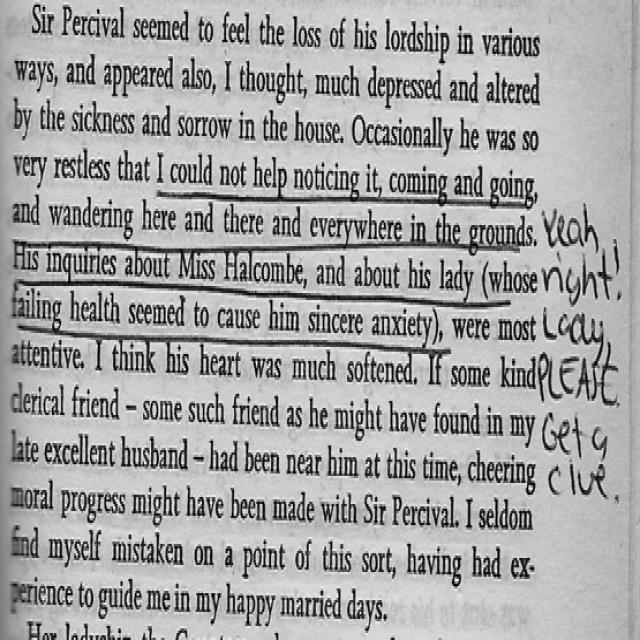 Sir Percival seemed to feel the loss of his lordship in various
ways, and appeared also, I thought, much depressed and altered
by the sickness and sorrow in the house. Occasionally he was so
very restless that I could not help noticing it, coming and going,
and wandering here and there and everywhere in the grounds.
His inquiries about Miss Halcombe, and about his lady (whose
failing health seemed to cause him sincere anxiety), were most
attentive. I think his heart was much softened. If some kind
clerical friend – some such friend as he might have found in my
late excellent husband – had been near him at this time, cheering
moral progress might have been made with Sir Percival. I seldom
find myself mistaken on a point of this sort, having had ex-
perience to guide me in my happy married days.
Her ladyship the
Yeah,
right!
Lady,
PLEASE
Get a
clue.